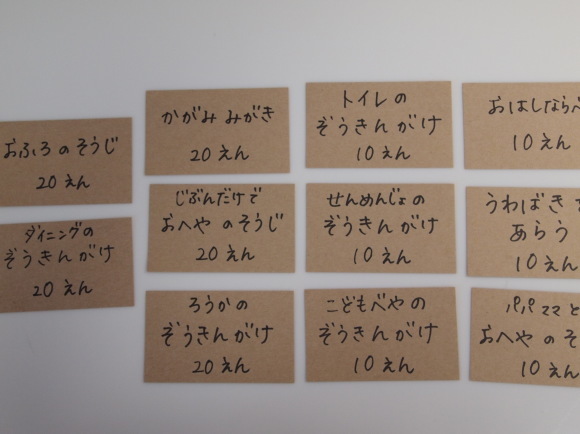 おふろのそうじ
20えん
ダイニングの
ぞうきんがけ
20えん
かがみみがき
20えん
じぶんだけで
おへやのそうじ
20えん
ろうかの
ぞうきんがけ
20えん
トイレの
ぞうきんがけ
10えん
せんめんじょの
ぞうきんがけ
10えん
こどもべやの
ぞうきんがけ
10えん
おはしならべ
10えん
うわばき
あらう
10えん
パパママと
おへやのそ
10えん